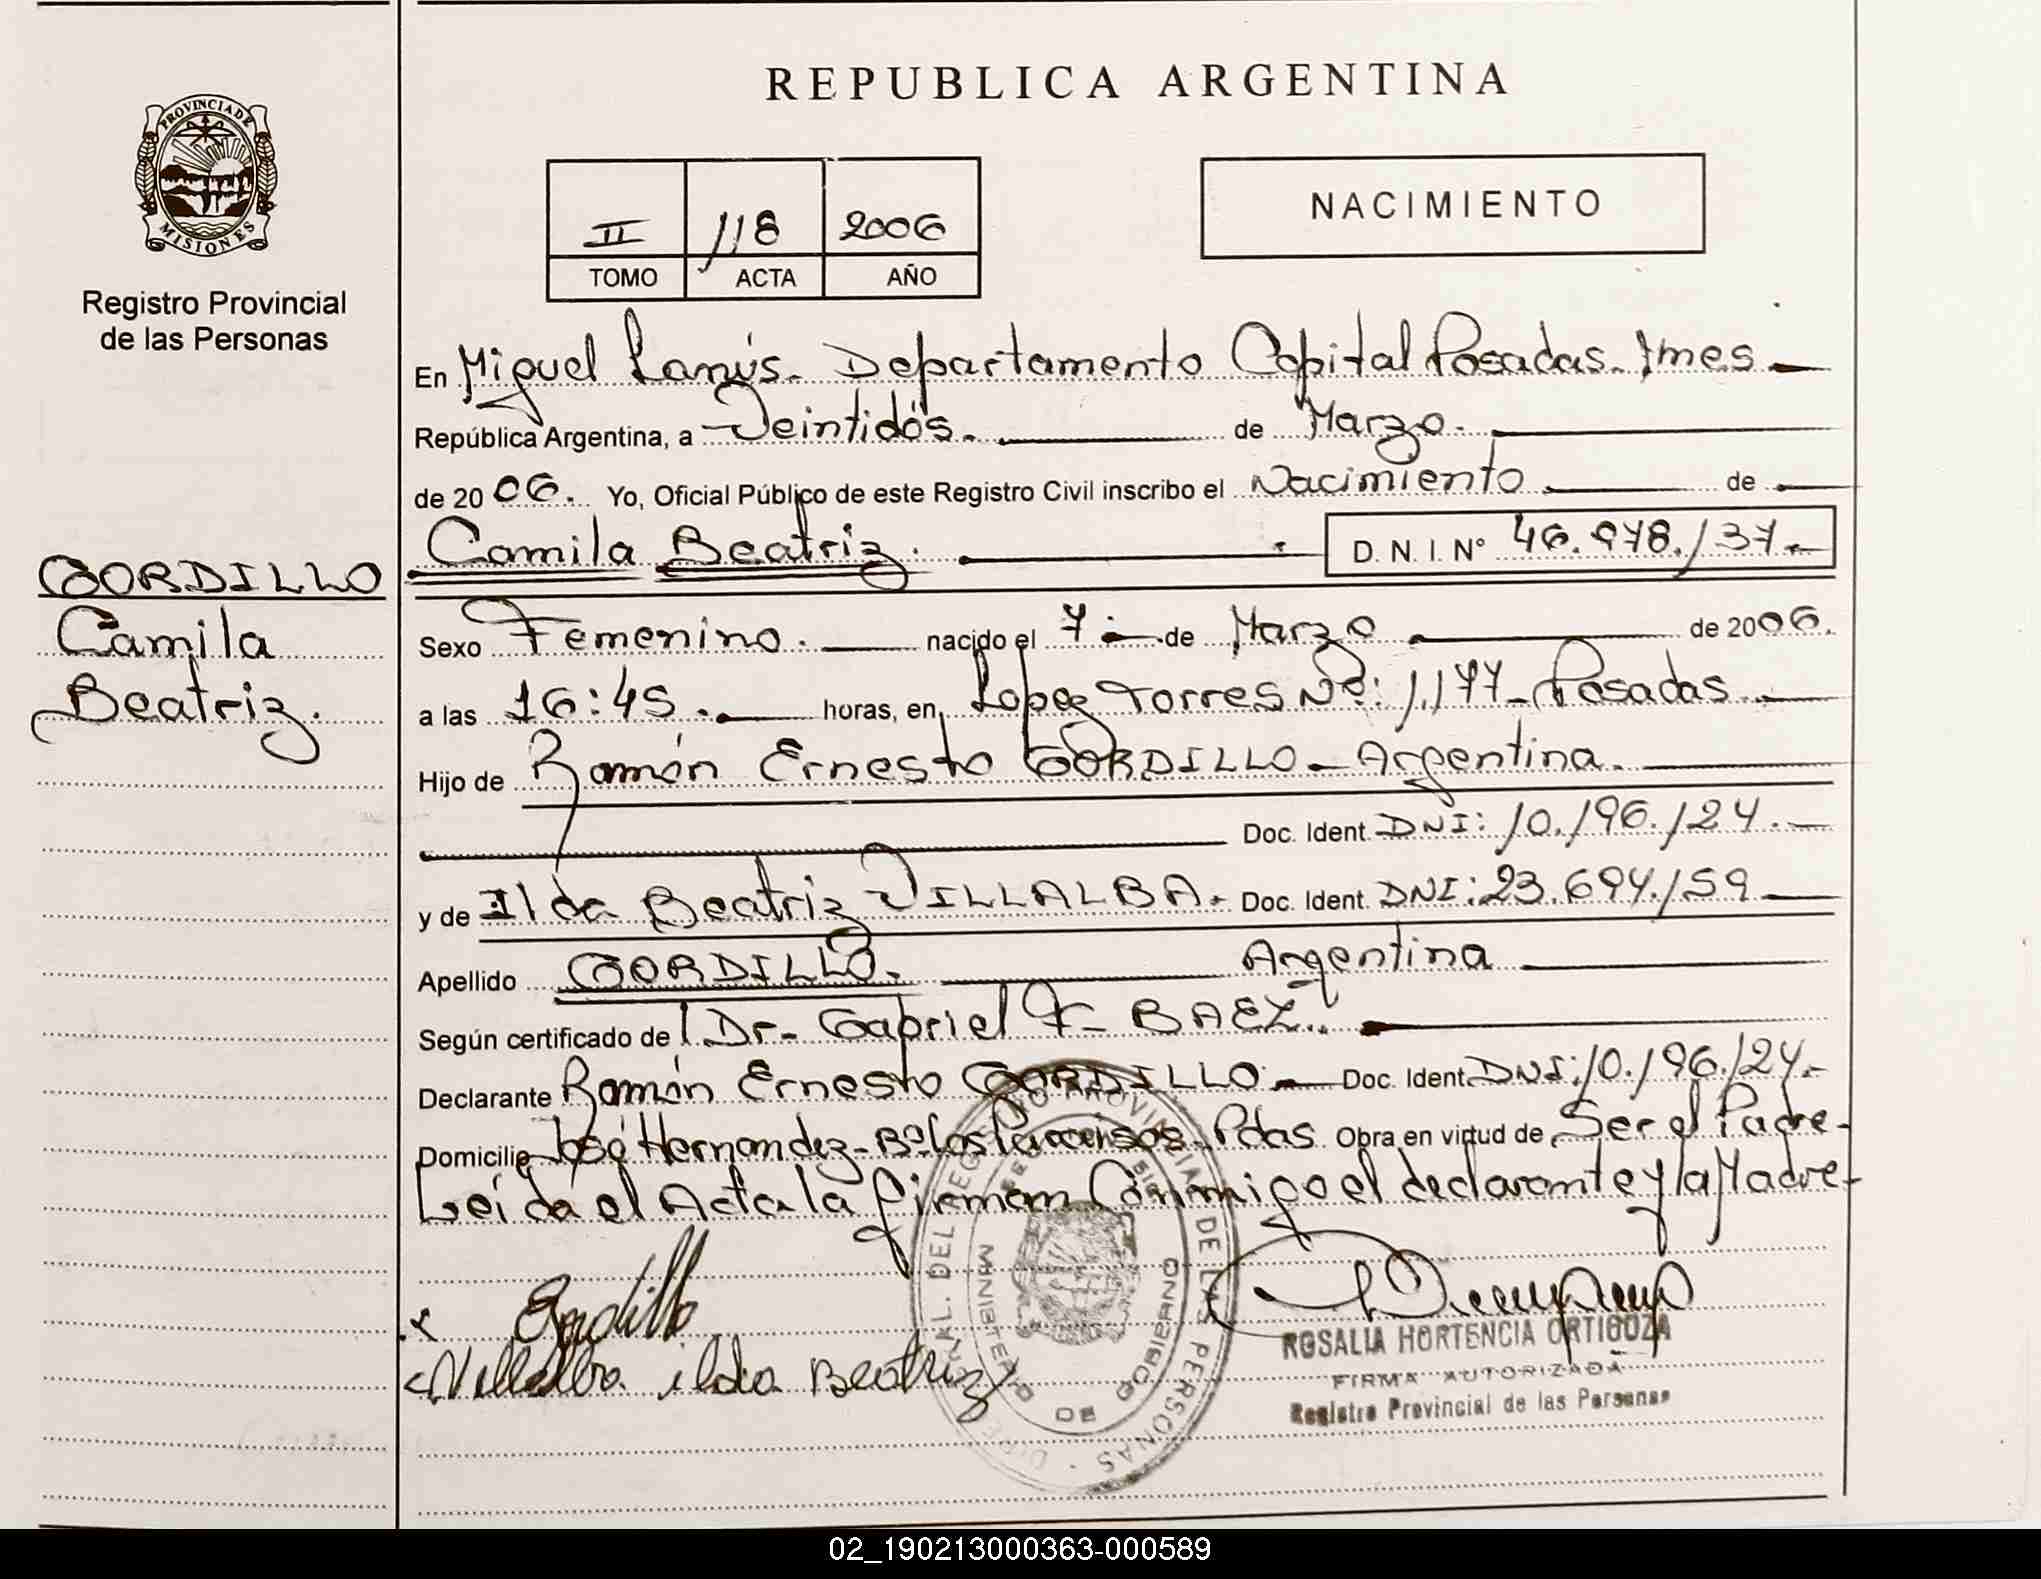 REPUBLICA ARGENTINA
PROVINCIA DE
MISIONES
Registro Provincial
de las Personas
II 118 2006
TOMO ACTA AÑO
NACIMIENTO
En Miguel Lanús. Departamento Capital Posadas. Mnes
República Argentina, a Veintidós. de Marzo.
de 2006. Yo, Oficial Público de este Registro Civil inscribo el Nacimiento de
Camila Beatriz. D. N. I. Nº 46.978.137.
GORDILLO
Camila
Beatriz.
Sexo Femenino. nacido el 7 de Marzo de 2006.
a las 16:45. horas, en Lopez Torres Nº: 1.177 - Posadas
Hijo de Ramón Ernesto GORDILLO - Argentina.
Doc. Ident. DNI: 10.196.124.
y de Ilda Beatriz VILLALBA. Doc. Ident. DNI: 23.694.159
Apellido GORDILLO. Argentina
Según certificado de Dr. Gabriel F. BAEZ.
Declarante Ramón Ernesto GORDILLO. Doc. Ident. DNI: 10.196.124.
Domicilio José Hernandez - Bº Los Paraisos - Pdas. Obra en virtud de Ser el Padre-
Leída el Acta la firman Conmigo el declarante y la Madre-
Gordillo
Villalba ilda Beatriz
DEL REGISTRO PROVINCIAL DE LAS PERSONAS
MINISTERIO DE GOBIERNO
ROSALIA HORTENCIA ORTIGOZA
FIRMA AUTORIZADA
Registro Provincial de las Personas
02_190213000363-000589